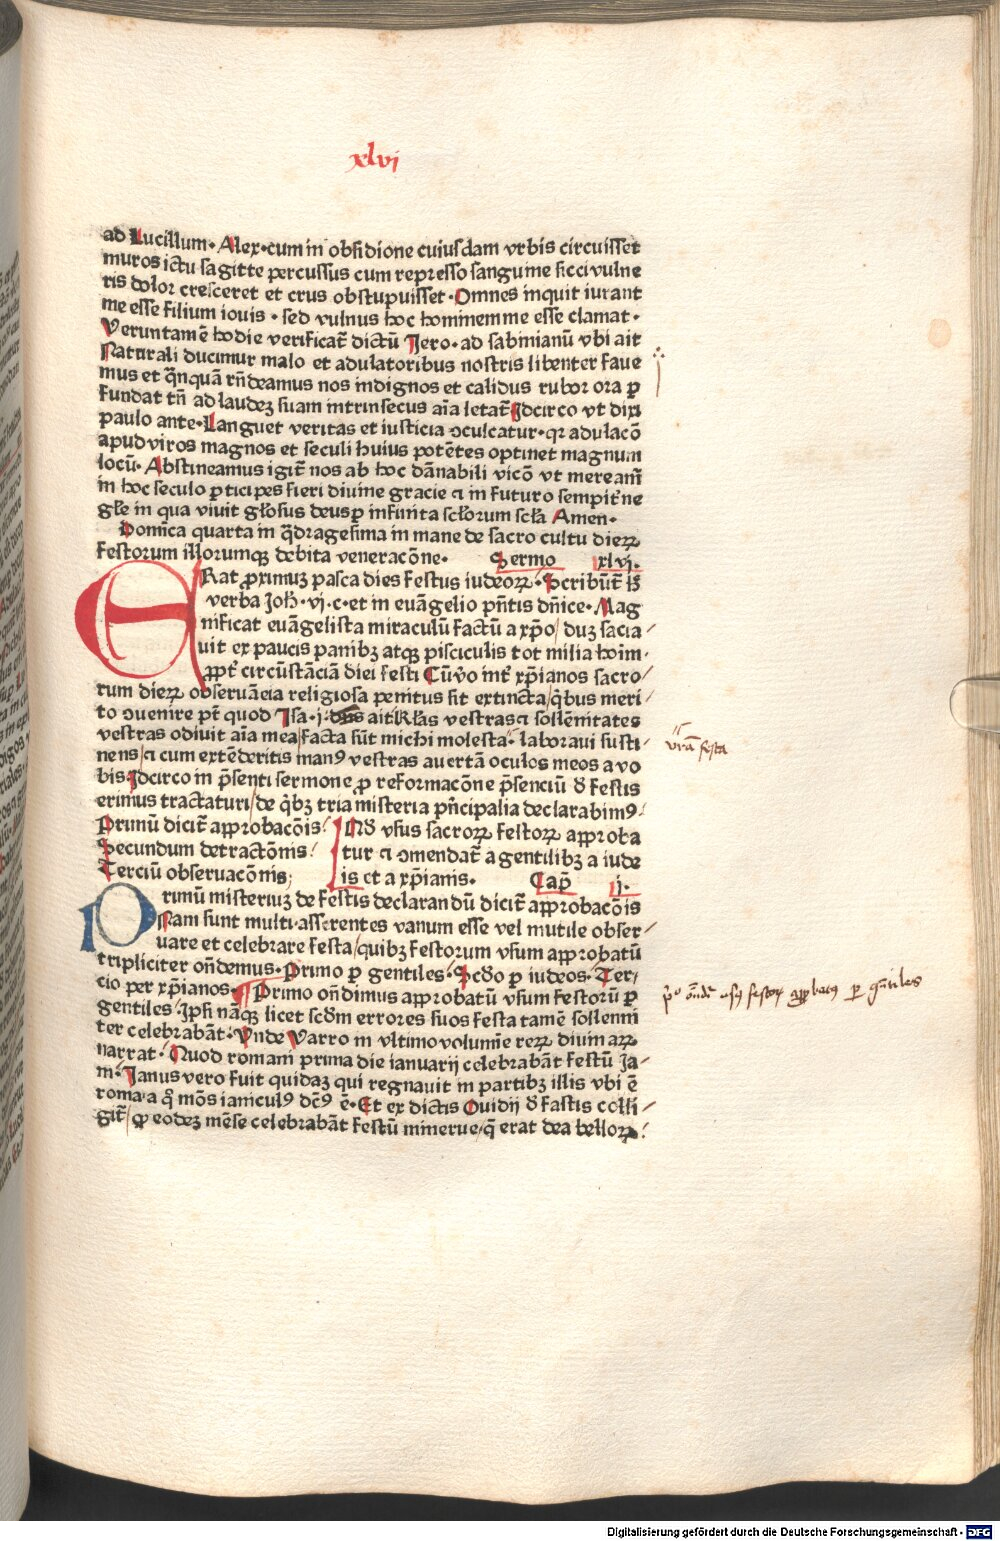 xlvi
ad Lucillum· Alex·cum in obsidione cuiusdam vrbis circuisset
muros ictu sagitte percussus cum represso sanguine sicci vulne
ris dolor cresceret et crus obstupuisset· Omnes inquit iurant
me esse filium iouis · sed vulnus hoc hominem me esse clamat·
Veruntamē hodie verificat̄ dictū Jero· ad sabinianū vbi ait
Naturali ducimur malo et adulatoribus nostris libenter faue
mus et q̄nquā rn̄deamus nos indignos et calidus rubor ora ꝑ
fundat tn̄ ad laudeꝫ suam intrinsecus aīa letat̄ Jdcirco vt dixi
paulo ante· Languet veritas et iusticia ꝯculcatur· qꝛ adulacō
apud viros magnos et seculi huius potētes optinet magnum
locū· Abstineamus igit̄ nos ab hoc dānabili vicō vt meream̄
in hoc seculo ꝑticipes fieri diuine gracie ⁊ in futuro sempit̄ne
gl̄e in qua viuit gl̄osus deus ꝑ infinita scl̄orum scl̄a Amen·
Domīca quarta in q̄dragesima in mane de sacro cultu dieꝝ
festorum illorumqꝫ debita veneracōne· Sermo xlvi·
ERat ꝓximuꝫ pasca dies festus iudeoꝝ· Scribūt̄ h̄
verba Joh̄· vi·c·et in euāgelio pn̄tis dn̄ice· Mag
nificat euāgelista miraculū factū a xp̄o/ duꝫ sacia/
uit ex paucis panibꝫ atqꝫ pisciculis tot milia hoīm·
ꝓpt̄ circūstāciā diei festi Cū v̄o int̄ xp̄ianos sacro/
rum dieꝝ obseruācia religiosa penitus sit extincta/ q̄bus meri/
to ꝯuenire pt̄ quod Jsa·i· dn̄s ait kl̄as vestras ⁊ sollēnitates
vestras odiuit aīa mea/ facta sūt michi molesta· laboraui susti/
nens/ ⁊ cum extēderitis manꝰ vestras auertā oculos meos a vo
bis· Jdcirco in p̄senti sermone ꝓ reformacōne p̄senciū d̄ festis
erimus tractaturi/ de q̄bꝫ tria misteria pn̄cipalia declarabimꝰ·
Primū dicit̄ approbacōis·
Secundum detractōnis·
Terciū obseruacōnis;
Nā vsus sacroꝝ festoꝝ approba
tur ⁊ ꝯmendat̄ a gentilibꝫ a iude
is et a xp̄ianis· Cap̄ i·
PRimū misteriuꝫ de festis declarandū dicit̄ approbacōis
Nam sunt multi asserentes vanum esse vel inutile obser/
uare et celebrare festa/ quibꝫ festorum vsum approbatū
tripliciter on̄demus· Primo ꝑ gentiles· Scd̄o ꝑ iudeos· Ter/
cio per xp̄ianos· Primo on̄dimus approbatū vsum festorū ꝑ
gentiles· Jpsi nāqꝫ licet scd̄m errores suos festa tamē sollenni
ter celebrabāt· Vnde Varro in vltimo volumīe reꝝ diuinaꝝ
narrat· Quod romani prima die ianuarij celebrabāt festū Ja/
ni· Janus vero fuit quidaꝫ qui regnauit in partibꝫ illis vbi ē
roma· a q̄ mōs ianiculꝰ dc̄ꝰ ē· Et ex dictis Ouidij d̄ fastis colli/
git̄/ ꝙ eodeꝫ mēse celebrabāt festū minerue/ q̄ erat dea belloꝝ·
vr̄a festa
p̄º on̄dit̄ vsꝰ festoꝝ approbatꝰ per gn̄tiles
Digitalisierung gefördert durch die Deutsche Forschungsgemeinschaft - DFG